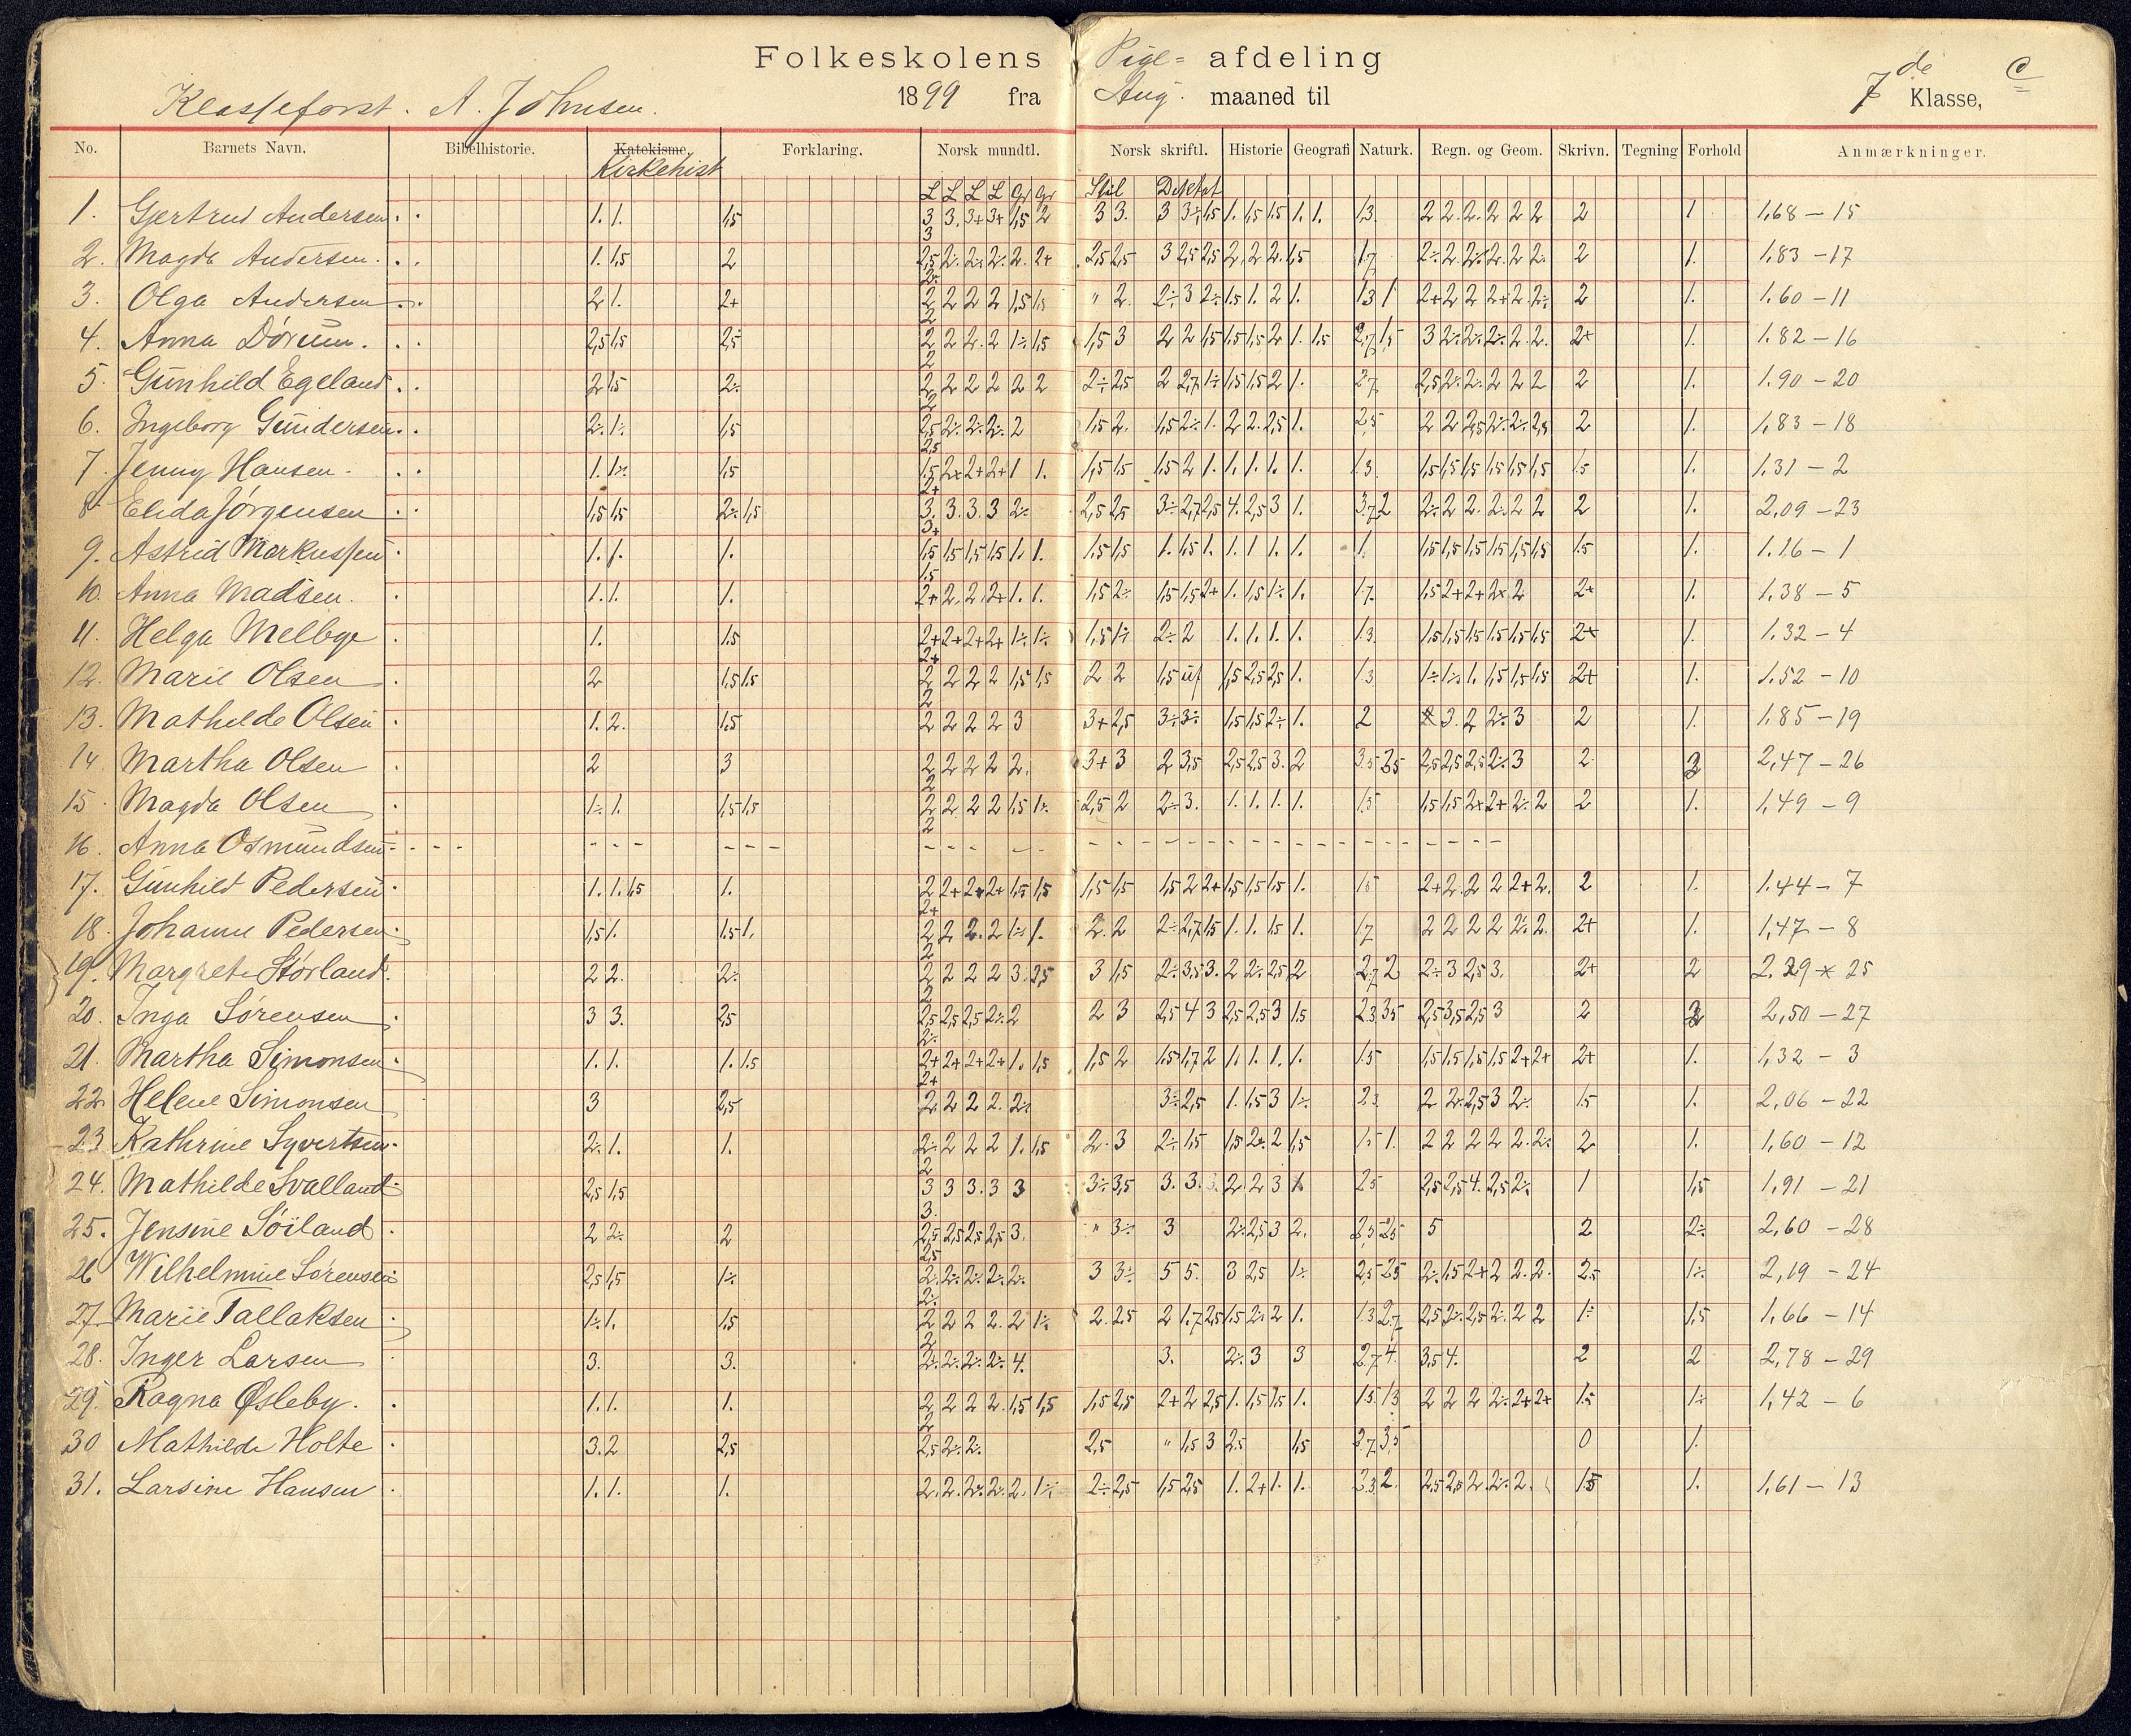 Folkeskolens Pige= afdeling 7 de Klasse, C
Klasseforst. A. Johnsen. 1899 fra Aug. maaned til
No. Barnets Navn. Bibelhistorie. Katekisme. Forklaring. Norsk mundtl. Norsk skriftl. Historie Geografi Naturk. Regn. og Geom. Skrivn. Tegning Forhold Anmærkninger.
Kirkehist
L L L L Gr Gr Stil Diktat
1. Gjertrud Andersen 1. 1. 1,5 3 3. 3+ 3+ 1,5 2 3 3. 3 3÷ 1,5 1. 1,5 1,5 1. 1. 1.3. 2 2. 2. 2 2 2 2 1 1,68 – 15
3
2. Magda Andersen. 1. 1,5 2 2,5 2÷ 2÷ 2÷ 2. 2+ 2,5 2,5 3 2,5 2,5 2. 2. 2. 1,5 1.7 2÷ 2. 2÷ 2. 2. 2. 2 1. 1.83 – 17
2÷
3. Olga Andersen 2 1. 2+ 2 2 2 2 1,5 1,5 " 2. 2÷ 3 2÷ 1.5 1. 2 1. 1.3 1 2+ 2 2 2+ 2. 2÷ 2 1. 1.60 – 11
2
4. Anna Dørum. 2,5 1,5 2,5 2 2 2. 2 1÷ 1,5 1,5 3 2 2 1,5 1,5 1,5 2 1. 1.5 2,7 1,5 3 2÷ 2÷ 2÷ 2. 2. 2+ 1. 1.82 – 16
2
5. Gunhild Egeland 2 1.5 2÷ 2 2 2 2 2 2 2÷ 2,5 2 2,7 1÷ 1,5 1,5 2 1. 2.7 2,5 2÷ 2÷ 2 2 2 2 1. 1.90 – 20
2
6. Ingeborg Gundersen. 2÷ 1÷ 1,5 2,5 2÷ 2÷ 2÷ 2 1,5 2. 1,5 2÷ 1. 2 2. 2,5 1. 2,5 2 2 2,5 2÷ 2÷ 2,5 2 1. 1,83 – 18
2,5
7. Jenny Hansen. 1. 1÷ 1,5 1.5 2+ 2+ 2+ 1 1. 1,5 1,5 1.5 2 1. 1. 1. 1. 1. 1.3. 1,5 1,5 1,5 1,5 1,5 1,5 1.5 1. 1.31 – 2
2+
8. Elida Jørgensen 1,5 1,5 2÷ 1,5 3. 3. 3. 3 2÷ 2,5 2,5 3÷ 2,7 2,5 4. 2,5 3 1. 3.7 2 2÷ 2 2. 2÷ 2 2 2 1. 2,09 – 23
3+
9. Astrid Markussen 1. 1. 1. 1,5 1,5 1,5 1,5 1. 1. 1.5 1,5 1. 1.5 1. 1. 1 1. 1. 1. 1,5 1,5 1,5 1,5 1,5 1,5 1.5 1. 1.16 – 1
1.5
10. Anna Madsen. 1. 1. 1. 2+ 2. 2. 2+ 1. 1. 1,5 2÷ 1,5 1,5 2+ 1. 1,5 1÷ 1. 1.7. 1.5 2+ 2+ 2+ 2 2+ 1. 1.38 – 5
11. Helga Melbye 1. 1.5 2+ 2+ 2+ 2+ 1÷ 1÷ 1,5 1÷ 2÷ 2 1. 1. 1. 1. 1.3. 1.5 1.5 1.5 1.5 1.5 1.5 2+ 1. 1.32 – 4
2+
12. Marie Olsen 2 1,5 1,5 2 2 2 2 1,5 1,5 2 2 1,5 uf 1,5 2,5 2,5 1. 1.3 1÷ 1÷ 1. 1,5 1,5 1,5 2+ 1. 1.52 – 10
2
13. Mathilde Olsen 1. 2. 1.5 2 2 2 2 3 3+ 2,5 3÷ 3÷ 1,5 1,5 2÷ 1. 2 3. 2 2÷ 3 2 1. 1.85 – 19
14. Martha Olsen 2 3 2 2 2 2 2. 3+ 3 2 3,5 2,5 2,5 3. 2 3.5 3,5 2,5 2,5 2,5 2÷ 3 2 2 2,47 – 26
2
15. Magda Olsen 1÷ 1. 1,5 1,5 2 2 2 2 1,5 1÷ 2,5 2 2÷ 3. 1. 1. 1. 1. 1.5 1,5 1,5 2+ 2+ 2÷ 2 2 1. 1,49 – 9
2
16. Anna Osmundsen - - - - - - - - - - - - - - - - - - - - - - - - - - - - - - - - -
17. Gunhild Pedersen 1. 1. 1.5 1. 2 2+ 2+ 2+ 1,5 1,5 1,5 1,5 1,5 2 2+ 1,5 1,5 1,5 1. 1.5 2+ 2. 2 2 2+ 2. 2 1. 1.44 – 7
2+
18. Johanne Pedersen 1,5 1. 1.5 1. 2 2 2. 2 1÷ 1. 2. 2 2÷ 2,7 1,5 1. 1. 1.5 1. 1.7 2 2 2 2 2÷ 2. 2+ 1. 1,47 – 8
2
19. Margrete Størland. 2 2. 2÷ 2 2 2 2 3. 2,5 3 1,5 2÷ 3,5 3. 2 2÷ 2,5 2 2.7 2 2÷ 3 2,5 3. 2+ 2 2.29 – 25
2
20. Inga Sørensen 3 3. 2,5 2,5 2,5 2,5 2÷ 2 2 3 2,5 4 3 2,5 2,5 3 1.5 2.3 3.5 2,5 3,5 2,5 3 2 2 2,50 – 27
2÷
21. Martha Simonsen 1. 1. 1. 1.5 2+ 2+ 2+ 2+ 1. 1,5 1,5 2 1.5 1,7 2 1. 1. 1. 1. 1.5 1,5 1,5 1,5 1,5 2+ 2+ 2+ 1. 1,32 – 3
2+
22. Helene Simonsen 3 2,5 2 2 2 2. 2÷ 3÷ 2,5 1. 1.5 3 1÷ 2.3. 2 2÷ 2,5 3 2÷ 1.5 1. 2,06 – 22
23 Kathrine Syvertsen 2÷ 1. 1. 2÷ 2 2 2 1. 1.5 2. 3 2÷ 1.5 1,5 2÷ 2 1,5 1.5 1. 2 2 2 2 2. 2÷ 2 1. 1,60 – 12
2
24. Mathilde Svalland 2,5 1,5 3 3 3. 3 3 3÷ 3,5 3. 3. 2. 2 3 1. 2.5 2,5 2,5 4. 2,5 2÷ 1 1,5 1,91 – 21
3.
25. Jensine Söiland 2 2÷ 2 2,5 2,5 2,5 2,5 3. " 3÷ 3 2÷ 2,5 3 2. 2.5 2,5 5 2 2÷ 2,60 – 28
2,5
26 Wilhelmine Sørensen 2,5 1,5 1÷ 2÷ 2÷ 2÷ 2÷ 2÷ 3 3÷ 5 5. 3 2,5 1÷ 2,5 2,5 2÷ 1,5 2+ 2 2. 2. 2.5 1÷ 2,19 – 24
2÷
27 Marie Tallaksen 1÷ 1. 1.5 2 2 2 2. 2 1÷ 2. 2.5 2 1.7 2,5 1.5 2÷ 2 1. 1.3 2.7 2,5 2÷ 2,5 2÷ 2 2 1÷ 1,5 1,66 – 14
2
28. Inger Larsen 3. 3. 2÷ 2÷ 2÷ 2÷ 4. 3. 2÷ 3 3 2.7 4. 3,5 4. 2 2 2,78 – 29
29. Ragna Øsleby. 1. 1. 1. 2 2 2 2. 1.5 1,5 1,5 2,5 2+ 2 2,5 1. 1.5 1,5 1. 1.5 1.3 2 2 2 2÷ 2+ 2+ 1.5 1÷ 1,42 – 6
2
30 Mathilde Holte 3. 2 2,5 2,5 2÷ 2÷ 2,5 " 1,5 3 2.5 1,5 2.7 3,5 0 1.
31. Larsine Hansen 1. 1. 1. 2. 2. 2÷ 2÷ 2. 1÷ 2÷ 2,5 1,5 2,5 1. 2+ 1. 1. 2.3 2. 2,5 2,5 2. 2÷ 2. 1.5 1. 1,61 – 13